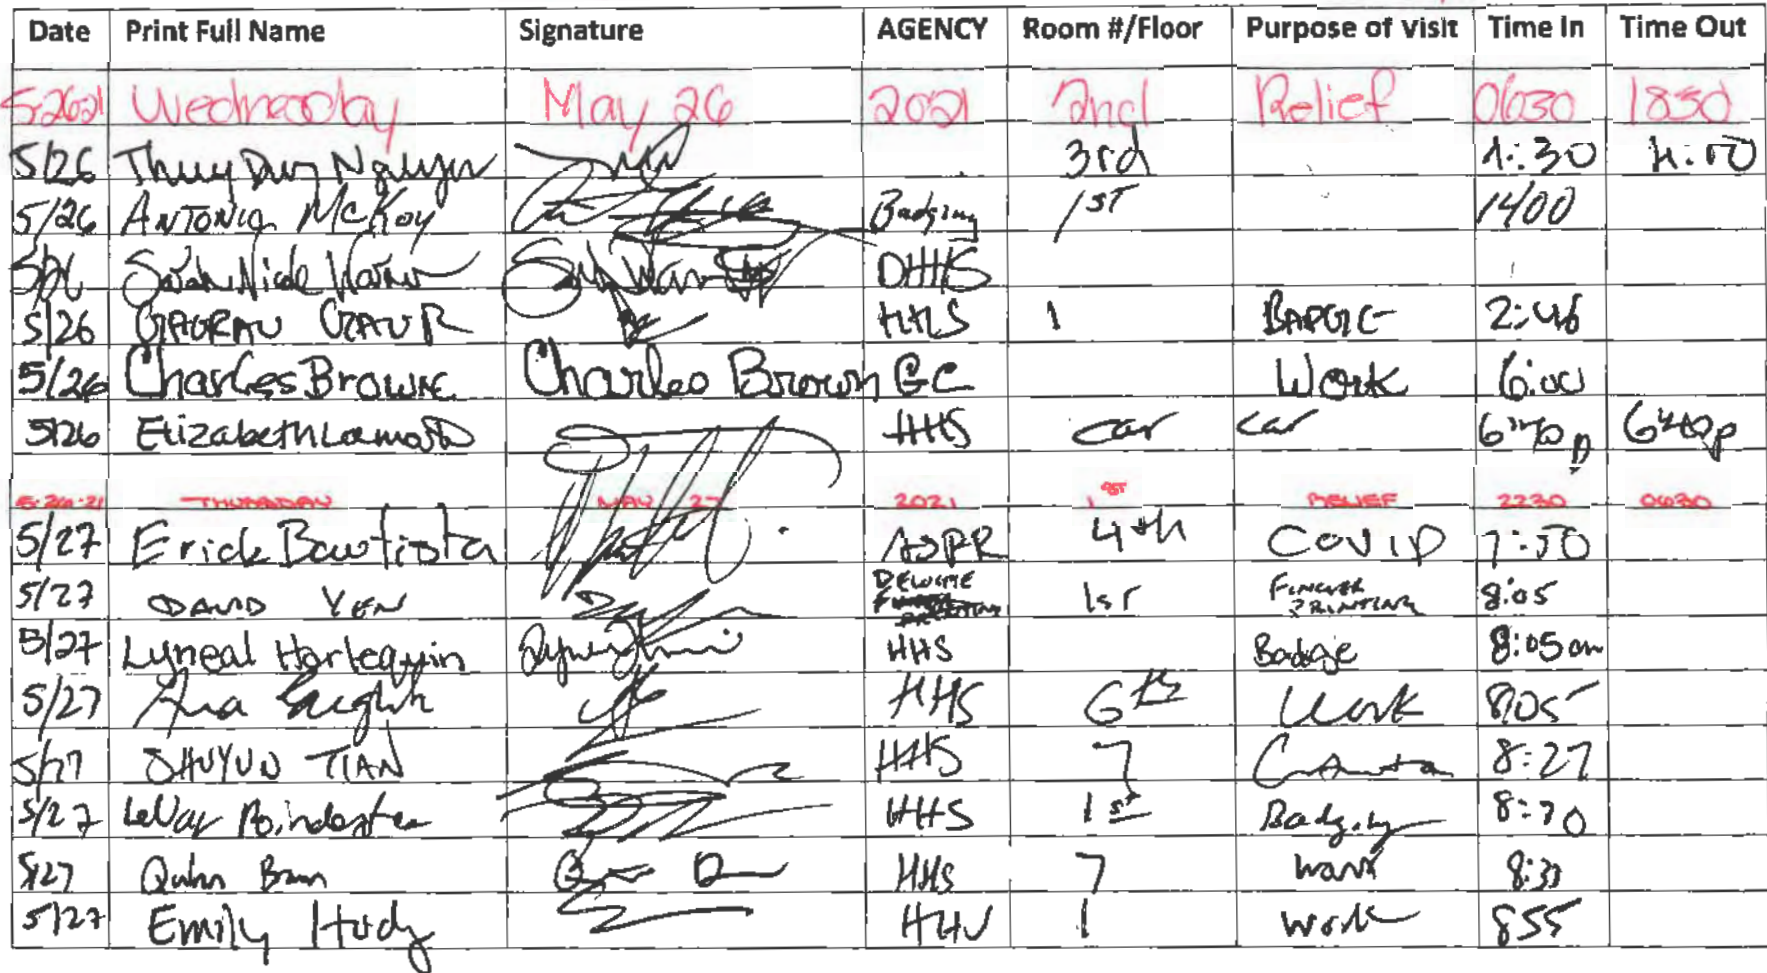 Date Print Full Name Signature AGENCY Room #/Floor Purpose of Visit Time In Time Out
5-26-21 Wednesday May 26 2021 2nd Relief 0630 1830
5/26 Thuy Duy Nguyen 3rd 1:30
5/26 ANTONIA McKoy Badging 1ST 1400
5/26 Sarah Nicole DHHS
5/26 GAURAV GAUR HHS 1 BADGE 2:46
5/26 Charles Browne Charles Brown GC Work 6:00
5/26 Elizabeth HHS car car 6:40p 6:40p
5-26-21 THURSDAY MAY 27 2021 1ST RELIEF 2230 0630
5/27 Erick Bautista ASPR 4th COVID 7:50
5/27 DAVID YEN DELOITTE 1st FINGER PRINTING 8:05
5/27 Lyneal Harlequin HHS Badge 8:05 am
5/27 HHS 6th Work 805
5/27 SHUYUN TIAN HHS 7 8:27
5/27 LeVar Poindexter HHS 1st Badging 8:30
5/27 Quinn HHS 7 work 8:30
5/27 Emily 1 work 855